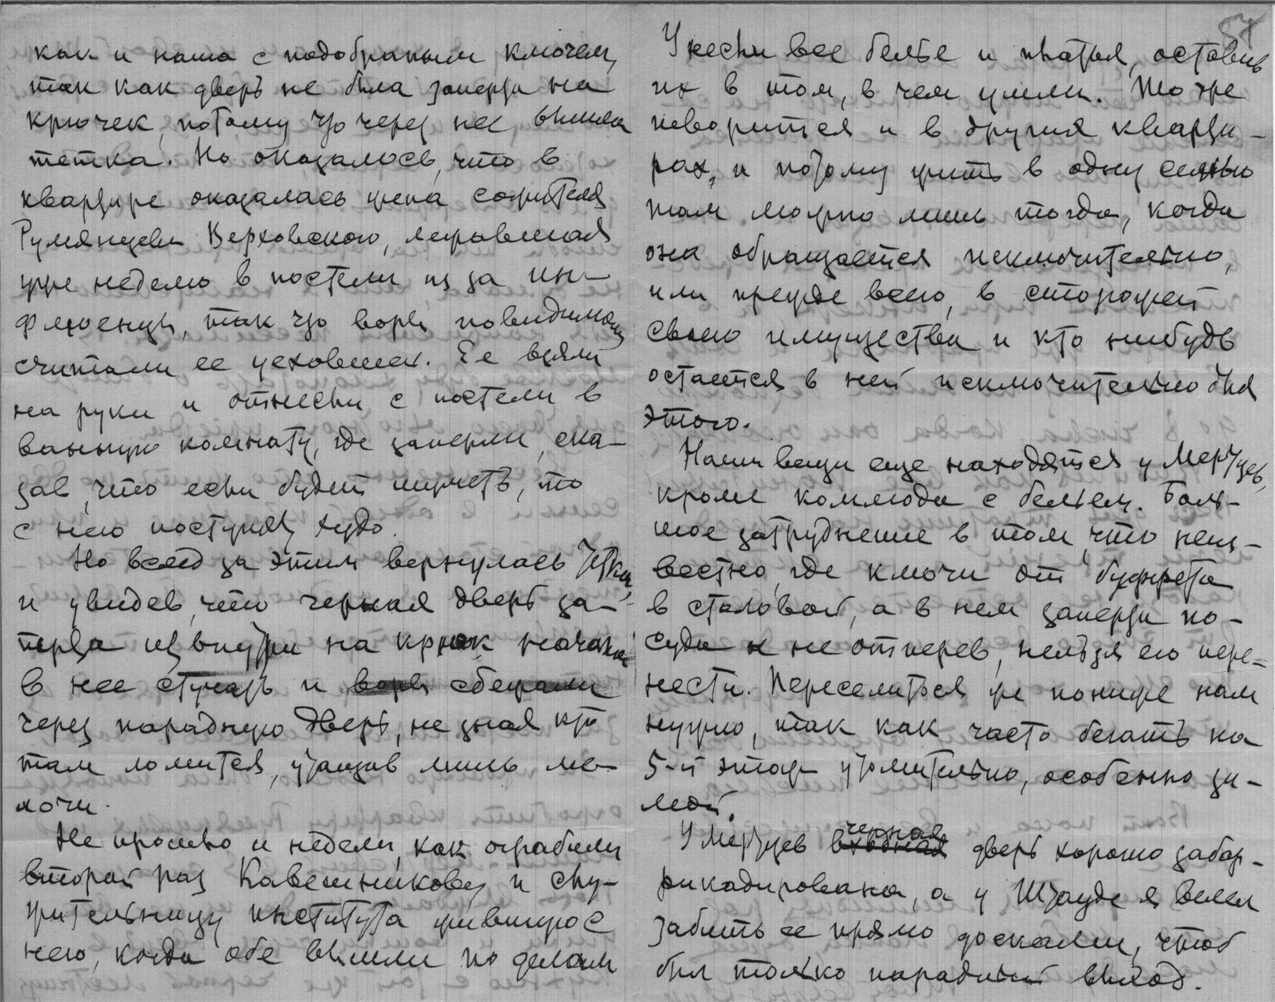 как и наша с подобраным ключем,
так как дверь не была заперта на
крючек, потому что через нее вышла
тетка. Но оказалось, что в
квартире оказалась жена сожителя
Румянцева Верховского, лежавшая
уже неделю в постели из за ин-
флюенцы, так что воры повидимому
считали ее уехавшей. Ее взяли
на руки и отнесли с постели в
ванную комнату, где заперли, ска-
зав, что если будет шуметь, то
с нею поступят худо.
Но вслед за этим вернулась тетка,
и увидев, что черная дверь за-
перта извнутри на крюк начала
в нее стучать и воры сбежали
через парадную дверь, не зная кто
там ломится, утащив лишь ме-
лочи.
Не прошло и недели, как ограбили
второй раз Кавешникову и слу-
жительницу института жившую с
нею, когда обе вышли по делам
57
Унесли все белье и платья, оставив
их в том, в чем ушли. То же
повторится и в других кварти-
рах, и потому жить в одну семью
там можно лишь тогда, когда
она обращается исключительно,
или прежде всего, в сторожей
своего имущества и кто нибудь
остается в ней исключительно для
этого.
Наши вещи еще находятся у Мертцев,
кроме коммода с бельем. Боль-
шое затруднение в том, что неиз-
вестно, где ключи от буфрета
в столовой, а в нем заперта по-
суда и не отперев, нельзя его пере-
нести. Переселиться же пониже нам
нужно, так как часто бегать на
5-й этаж утомительно, особенно зи-
мой.
У Мертцев черная дверь хорошо забар-
рикадирована, а у Штауде я велел
забить ее прямо досками, чтоб
был только парадный выход.